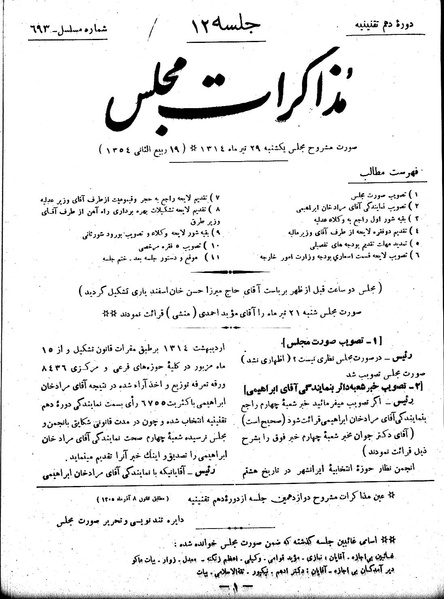 دورهٔ دهم تقنینیه
جلسه ۱۲
شماره مسلسل - ۶۹۳
مذاکرات مجلس
صورت مشروح مجلس یکشنبه ۲۹ تیر ماه ۱۳۱۴ * (۱۹ ربیع الثانی ۱۳۵۴)
فهرست مطالب
۱) تصویب صورت مجلس
۲) تصویب نمایندگی آقای مرادخان ابراهیمی
۳) بقیه شور اول راجع به وکلاء عدلیه
۴) تقدیم دو فقره لایحه از طرف آقای وزیر مالیه
۵) تمدید مهلت تقدیم بودجه های تفصیلی
۶) تصویب لایحه قسمت اسعاری بودجه وزارت امور خارجه
۷) تقدیم لایحه راجع به حجر و قیمومیت از طرف آقای وزیر عدلیه
۸) تقدیم لایحه تشکیلات بهره برداری راه آهن از طرف آقای
وزیر طرق
۹) بقیه شور لایحه وکلاء و تصویب بورود شور ثانی
۱۰) تصویب ۵ فقره مرخصی
۱۱) موقع و دستور جلسه بعد - ختم جلسه
(مجلس دو ساعت قبل از ظهر بریاست آقای حاج میرزا حسن خان اسفندیاری تشکیل گردید)
صورت مجلس شنبه ۲۱ تیر ماه را آقای مؤید احمدی (منشی) قرائت نمودند
[۱- تصویب صورت مجلس]
رئیس - در صورت مجلس نظری نیست؟ (اظهاری نشد)
صورت مجلس تصویب شد
[۲- تصویب خبر شعبه دائر بنمایندگی آقای ابراهیمی]
رئیس - اگر تصویب میفرمائید خبر شعبهٔ چهارم راجع
بنمایندگی آقای مرادخان ابراهیمی قرائت شود (صحیح است)
(آقای دکتر جوان مخبر شعبهٔ چهارم خبر فوق را بشرح
ذیل قرائت نمودند)
انجمن نظار حوزهٔ انتخابیهٔ ایرانشهر در تاریخ هشتم
اردیبهشت ۱۳۱۴ برطبق مقررات قانون تشکیل و از ۱۵
ماه مزبور در کلیهٔ حوزه‌های فرعی و مرکزی ۸۴۳۶
ورقه تعرفه توزیع و اخذ آراء شده در نتیجه آقای مرادخان
ابراهیمی باکثریت ۶۷۵۵ رأی بسمت نمایندگی دورهٔ دهم
تقنینیه انتخاب شده و چون در مدت قانونی شکایتی بانجمن و
مجلس نرسیده شعبهٔ چهارم صحت نمایندگی آقای مرادخان
ابراهیمی را تصدیق و اینک خبر آنرا تقدیم مینماید.
رئیس - آقایانیکه با نمایندگی آقای مرادخان ابراهیمی
* عین مذاکرات مشروح دوازدهمین جلسه از دورهٔ دهم تقنینیه
(مطابق قانون ۸ آذر ماه ۱۳۰۵)
دایره تند نویسی و تحریر صورت مجلس
** اسامی غائبین جلسه گذشته که ضمن صورت مجلس خوانده شده:
غائبین بی اجازه - آقایان: نیازی - مؤید قوامی - وکیلی - اعظم زنگنه - معدل - زوار - بیات ماکو
دیر آمدگان بی اجازه - آقایان: دکتر ادهم - نیکپور - ثقةالاسلامی - بیات
- ۱ -